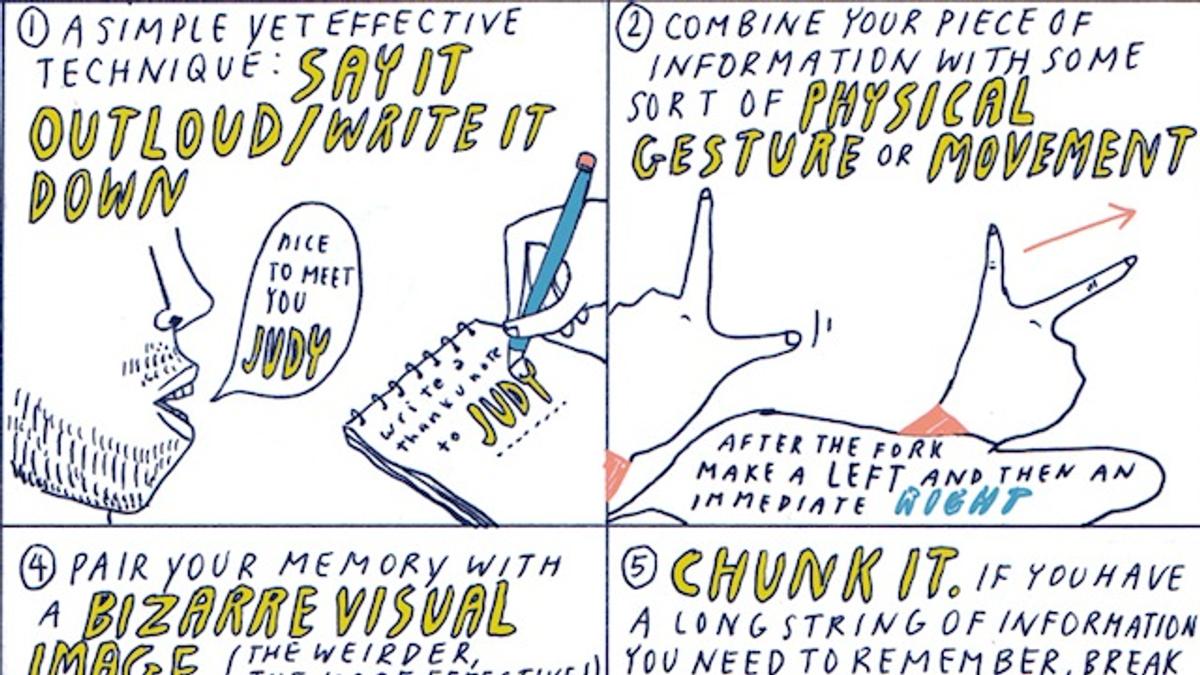 ① A SIMPLE YET EFFECTIVE
TECHNIQUE: SAY IT
OUTLOUD/WRITE IT
DOWN
NICE
TO MEET
YOU
JUDY
write a
thank u note
to JUDY
② COMBINE YOUR PIECE OF
INFORMATION WITH SOME
SORT OF PHYSICAL
GESTURE OR MOVEMENT
AFTER THE FORK
MAKE A LEFT AND THEN AN
IMMEDIATE RIGHT
④ PAIR YOUR MEMORY WITH
A BIZARRE VISUAL
IMAGE (THE WEIRDER,
⑤ CHUNK IT. IF YOU HAVE
A LONG STRING OF INFORMATION
YOU NEED TO REMEMBER, BREAK